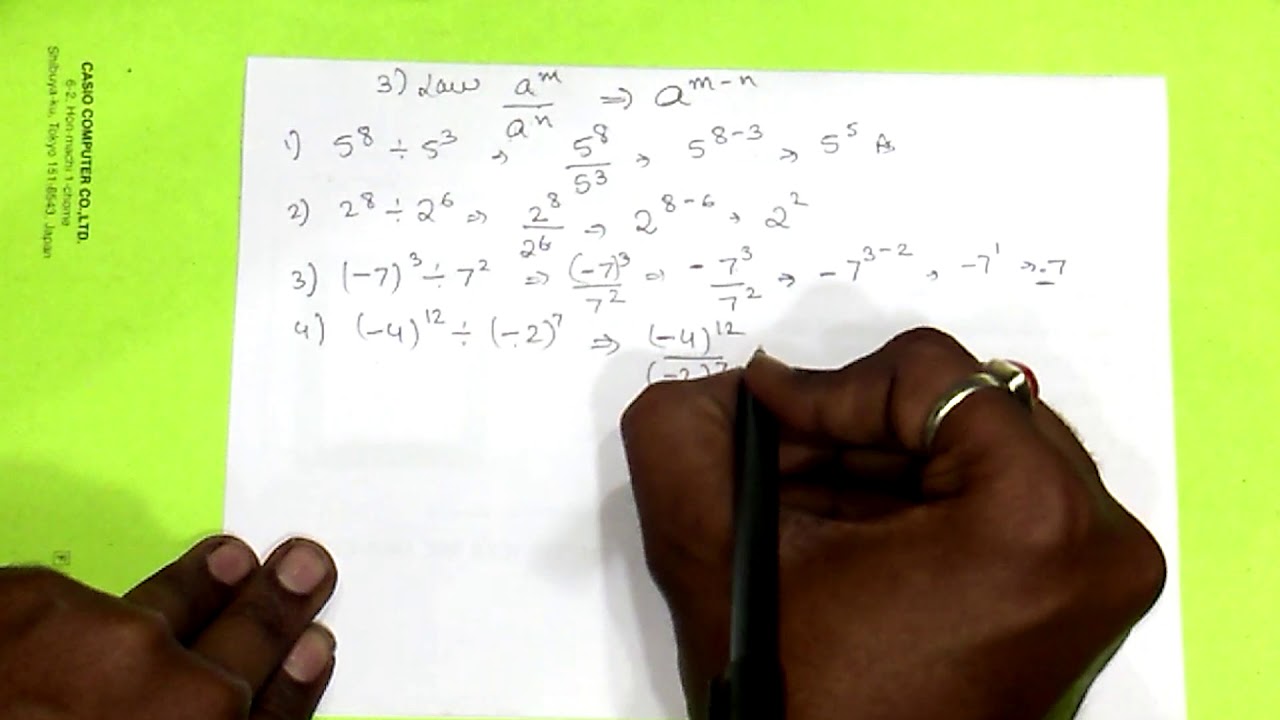 CASIO COMPUTER CO.,LTD.
6-2, Hon-machi 1-chome
Shibuya-ku, Tokyo 151-8543, Japan
3) Law a^m/a^n ⇒ a^(m-n)
1) 5^8 ÷ 5^3 → 5^8/5^3 → 5^(8-3) → 5^5
2) 2^8 ÷ 2^6 ⇒ 2^8/2^6 → 2^(8-6) → 2^2
3) (-7)^3 ÷ 7^2 ⇒ (-7)^3/7^2 ⇒ -7^3/7^2 → -7^(3-2) → -7^1 → -7
4) (-4)^12 ÷ (-2)^7 ⇒ (-4)^12/(-2)^7